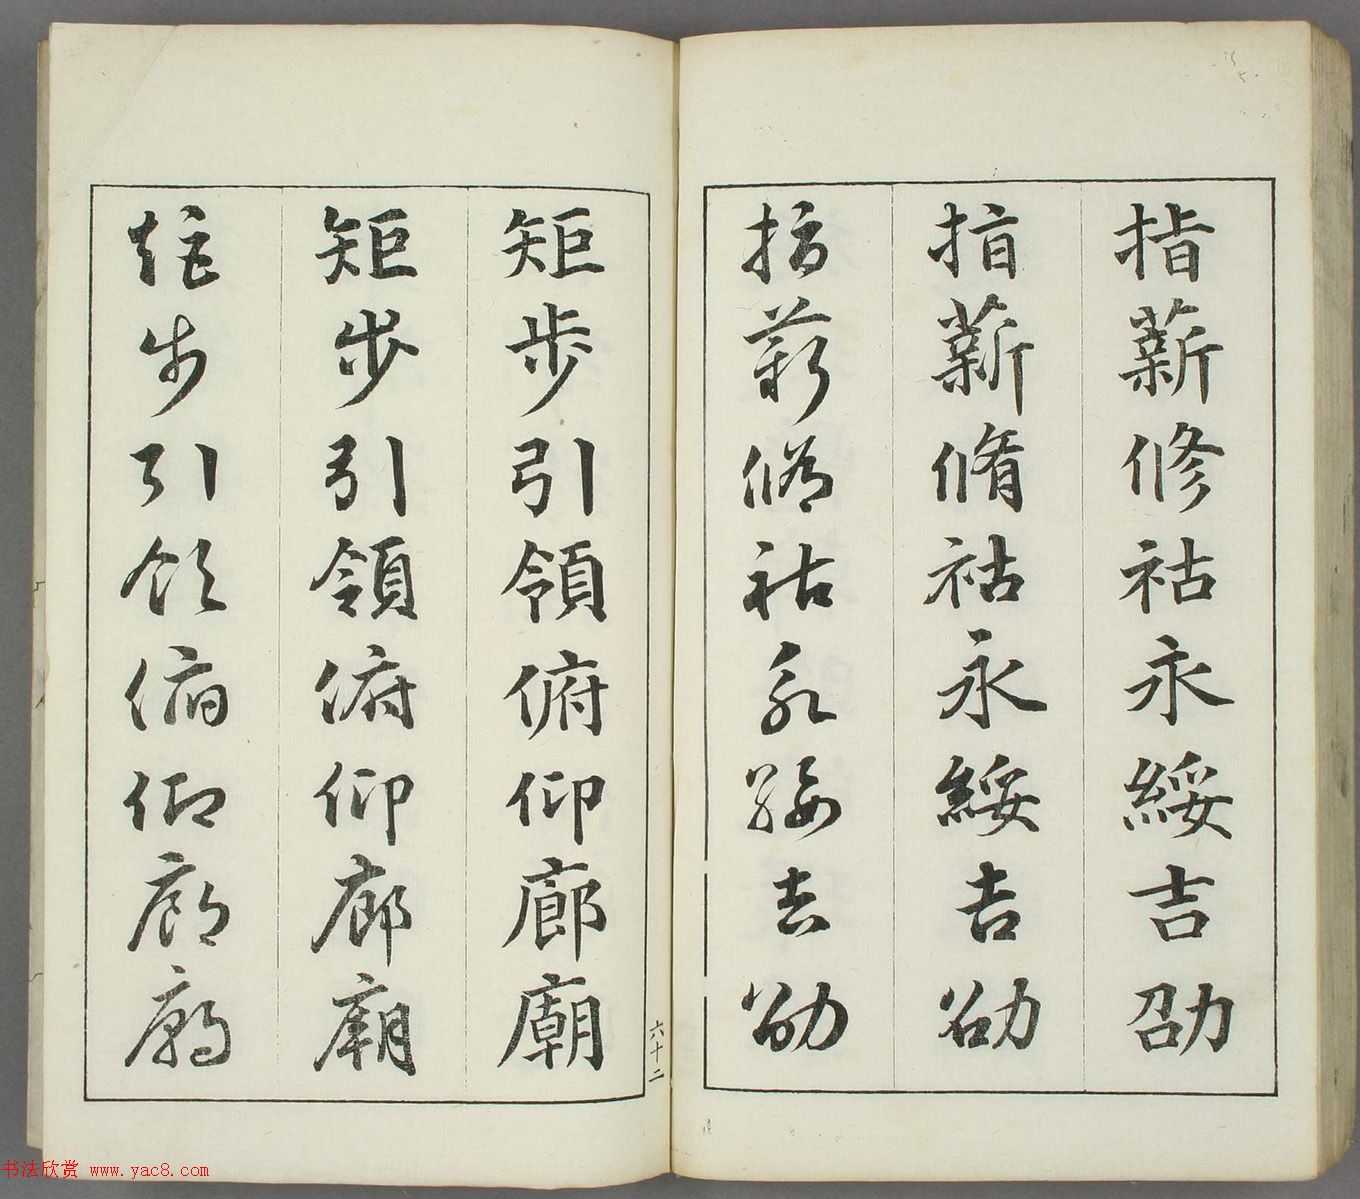 指薪修祜永綏吉劭
指薪脩祜永綏吉劭
指薪脩祜永綏吉劭
矩步引領俯仰廊廟
矩步引領俯仰廊廟
矩步引領俯仰廊廟
六十二
书法欣赏 www.yac8.com